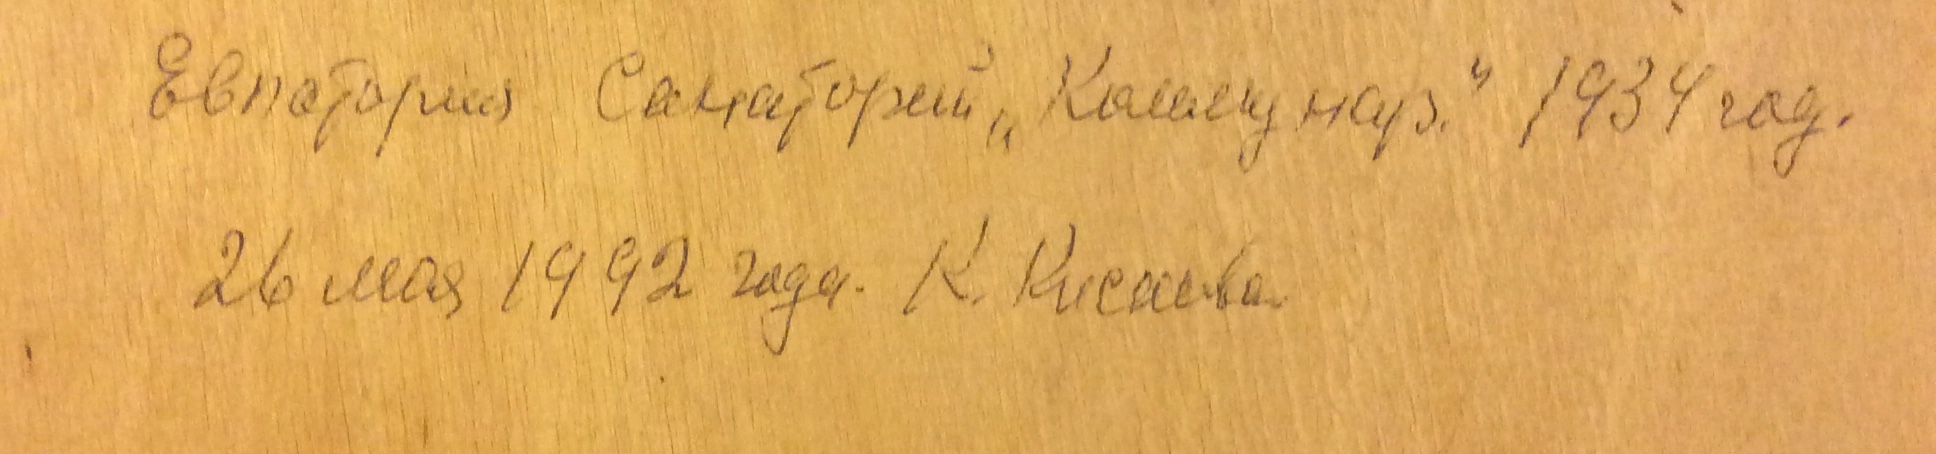 Евпатория Санаторий „Коммунар." 1934 год.
26 мая 1992 года. К.